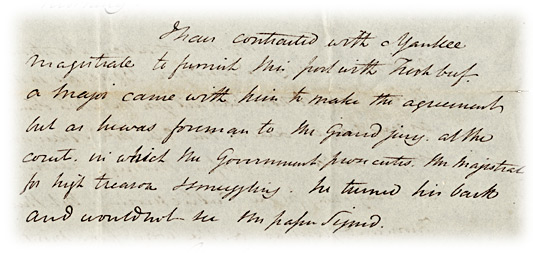 I have contracted with a Yankee
magistrate to furnish this post with Fresh beef.
a major came with him to make the agreement
but as he was foreman to the Grand jury. at the
court. in which the Government prosecutes. the magistrate
for high treason & smuggling. he turned his back
and would not see the paper signed.